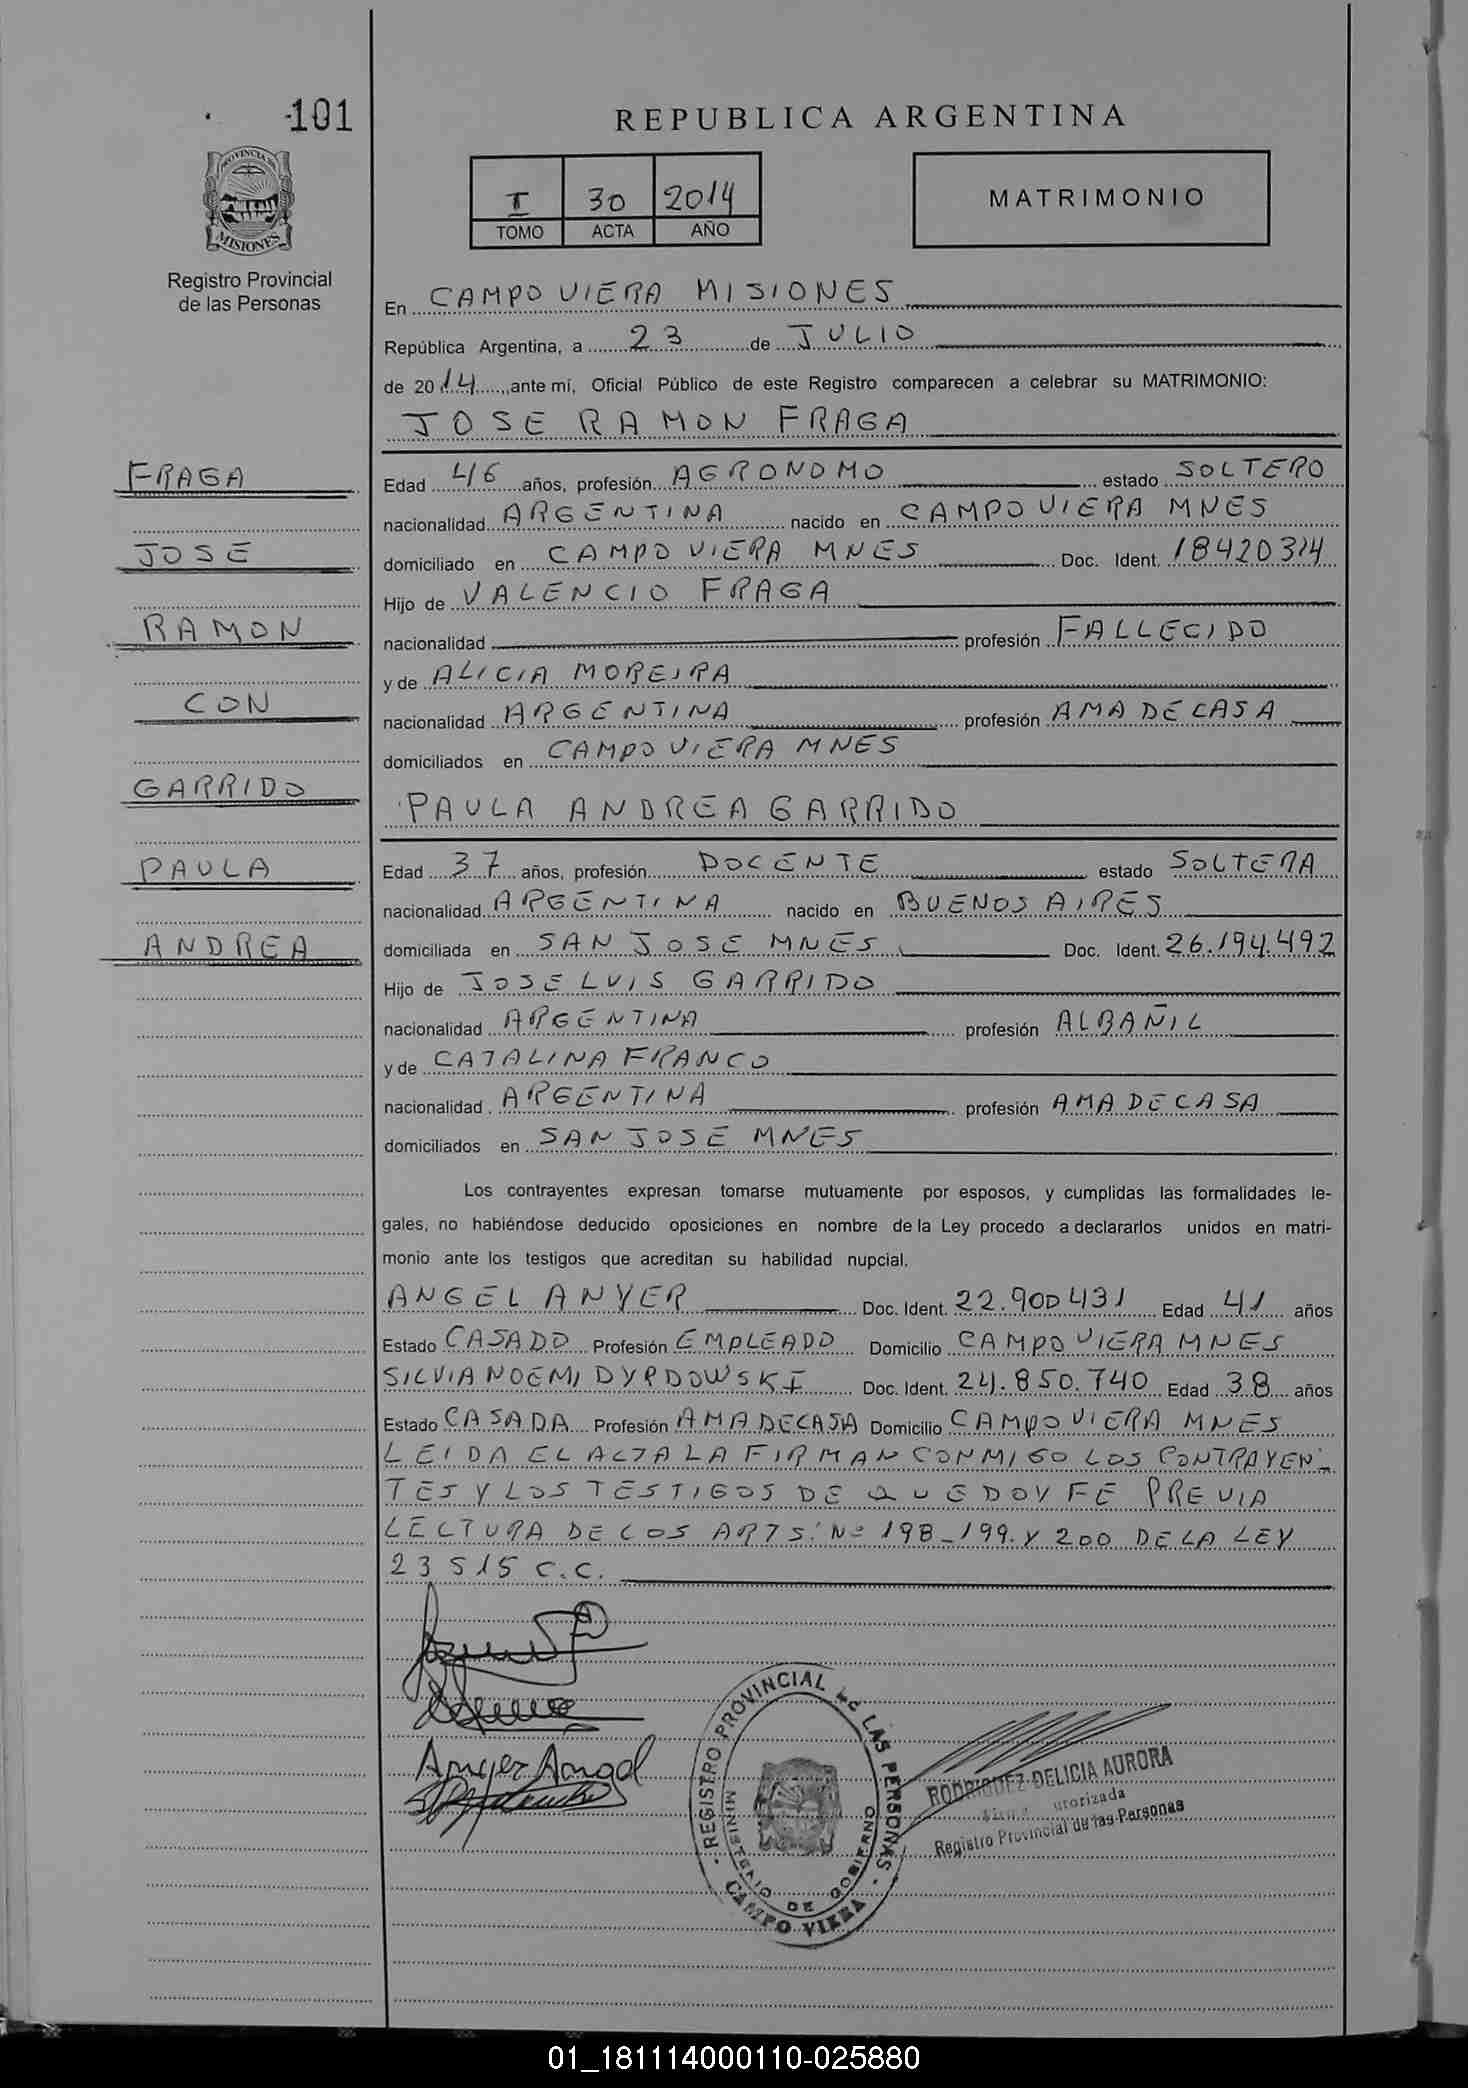 101
PROVINCIA DE
MISIONES
Registro Provincial
de las Personas
REPUBLICA ARGENTINA
I 30 2014
TOMO ACTA AÑO
MATRIMONIO
En CAMPO VIERA MISIONES
República Argentina, a 23 de JULIO
de 2014, ante mí, Oficial Público de este Registro comparecen a celebrar su MATRIMONIO:
JOSE RAMON FRAGA
FRAGA
JOSE
RAMON
CON
GARRIDO
PAULA
ANDREA
Edad 46 años, profesión AGRONOMO estado SOLTERO
nacionalidad ARGENTINA nacido en CAMPO VIERA MNES
domiciliado en CAMPO VIERA MNES Doc. Ident. 18420314
Hijo de VALENCIO FRAGA
nacionalidad profesión FALLECIDO
y de ALICIA MOREIRA
nacionalidad ARGENTINA profesión AMA DE CASA
domiciliados en CAMPO VIERA MNES
PAULA ANDREA GARRIDO
Edad 37 años, profesión DOCENTE estado SOLTERA
nacionalidad ARGENTINA nacido en BUENOS AIRES
domiciliada en SAN JOSE MNES Doc. Ident. 26.194.492
Hijo de JOSE LUIS GARRIDO
nacionalidad ARGENTINA profesión ALBAÑIL
y de CATALINA FRANCO
nacionalidad ARGENTINA profesión AMA DE CASA
domiciliados en SAN JOSE MNES
Los contrayentes expresan tomarse mutuamente por esposos, y cumplidas las formalidades le-
gales, no habiéndose deducido oposiciones en nombre de la Ley procedo a declararlos unidos en matri-
monio ante los testigos que acreditan su habilidad nupcial.
ANGEL ANYER Doc. Ident. 22.900431 Edad 41 años
Estado CASADO Profesión EMPLEADO Domicilio CAMPO VIERA MNES
SILVIA NOEMI DYRDOWSKI Doc. Ident. 24.850.740 Edad 38 años
Estado CASADA Profesión AMA DE CASA Domicilio CAMPO VIERA MNES
LEIDA EL ACTA LA FIRMAN CONMIGO LOS CONTRAYEN-
TES Y LOS TESTIGOS DE QUE DOY FE PREVIA
LECTURA DE LOS ARTS: Nº 198-199. Y 200 DE LA LEY
23515 C.C.
Anyer Angel
REGISTRO PROVINCIAL de LAS PERSONAS
MINISTERIO DE GOBIERNO
CAMPO VIERA
RODRIGUEZ DELICIA AURORA
Firma autorizada
Registro Provincial de las Personas
01_181114000110-025880